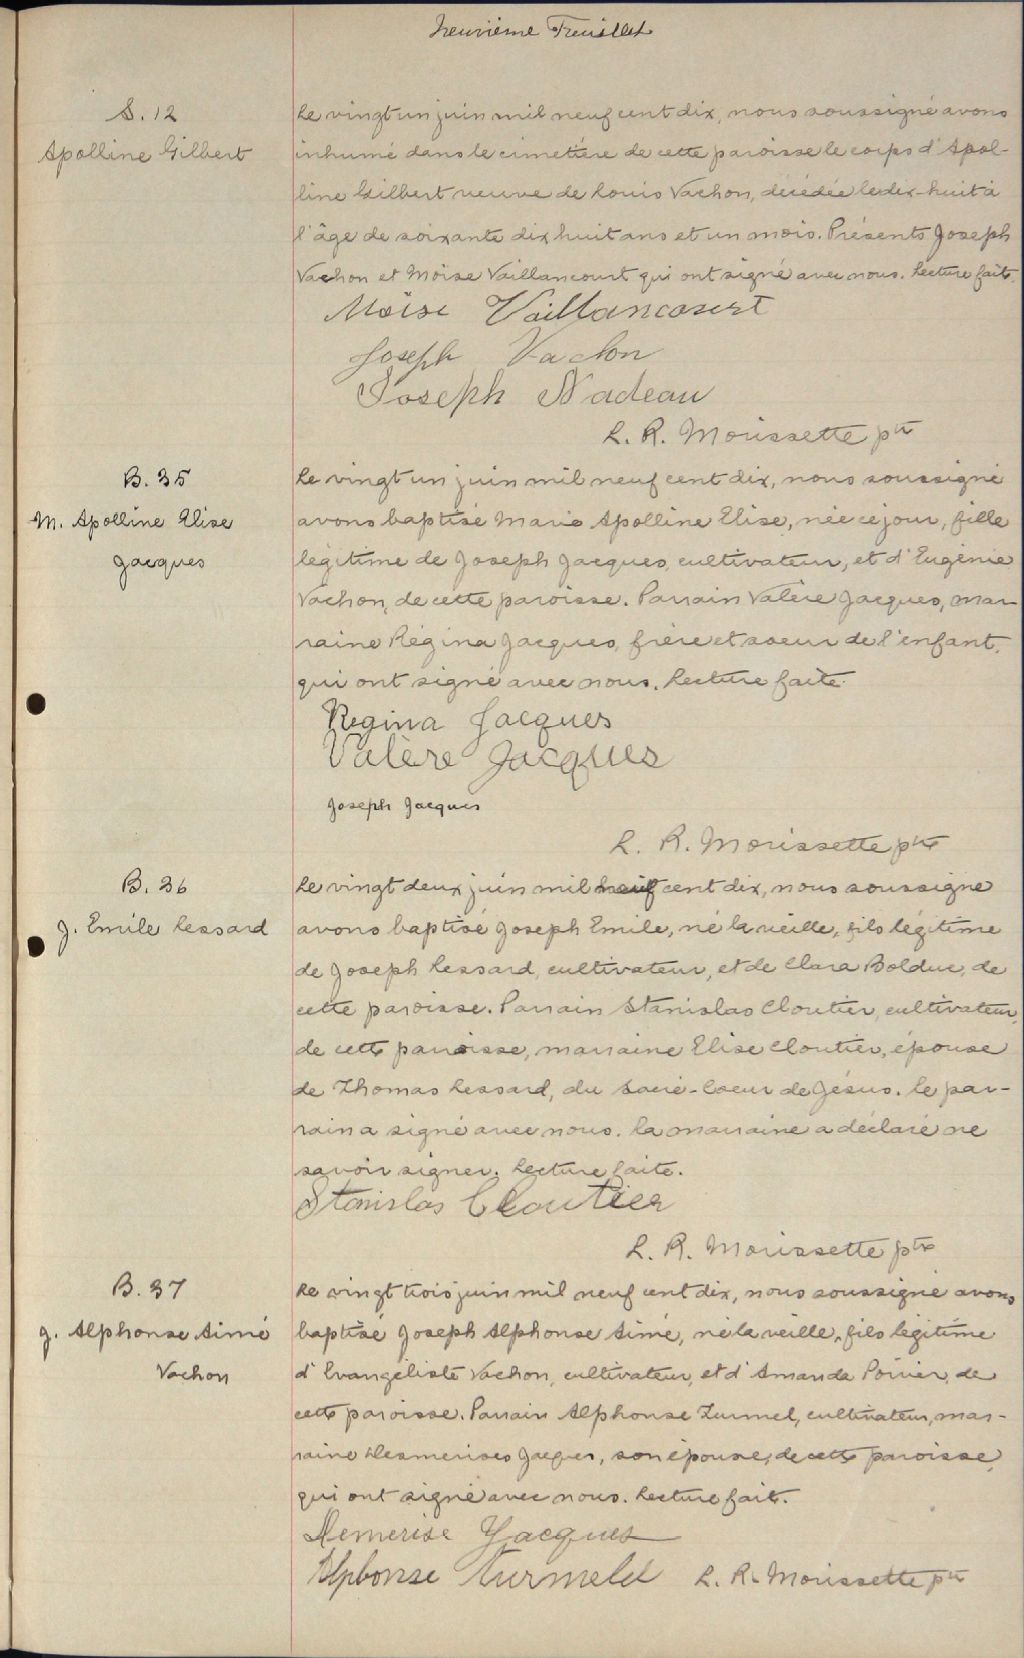 Neuvième Feuillet
S. 12
Apolline Gilbert
Le vingt un juin mil neuf cent dix, nous soussigné avons
inhumé dans le cimetière de cette paroisse le corps d'Apol-
line Gilbert veuve de Louis Vachon, décédée le dix-huit à
l'âge de soixante dix huit ans et un mois. Présents Joseph
Vachon et Moïse Vaillancourt qui ont signé avec nous. Lecture faite.
Moïse Vaillancourt
Joseph Vachon
Joseph Nadeau
L. R. Morissette ptre
B. 35
M. Apolline Elise
Jacques
Le vingt un juin mil neuf cent dix, nous soussigné
avons baptisé Marie Apolline Elise, née ce jour, fille
légitime de Joseph Jacques, cultivateur, et d'Eugénie
Vachon, de cette paroisse. Parrain Valère Jacques, mar-
raine Régina Jacques, frère et soeur de l'enfant,
qui ont signé avec nous. Lecture faite.
Regina Jacques
Valère Jacques
Joseph Jacques
L. R. Morissette ptre
B. 36
J. Emile Lessard
Le vingt deux juin mil neuf cent dix, nous soussigné
avons baptisé Joseph Emile, né la veille, fils légitime
de Joseph Lessard, cultivateur, et de Clara Bolduc, de
cette paroisse. Parrain Stanislas Cloutier, cultivateur,
de cette paroisse, marraine Elise Cloutier, épouse
de Thomas Lessard, du Sacré-Coeur de Jésus. Le par-
rain a signé avec nous. La marraine a déclaré ne
savoir signer. Lecture faite.
Stanislas Cloutier
L. R. Morissette ptre
B. 37
J. Alphonse Aimé
Vachon
Le vingt trois juin mil neuf cent dix, nous soussigné avons
baptisé Joseph Alphonse Aimé, né la veille, fils légitime
d'Evangéliste Vachon, cultivateur, et d'Amanda Poirier, de
cette paroisse. Parrain Alphonse Turmel, cultivateur, mar-
raine Desmerises Jacques, son épouse, de cette paroisse,
qui ont signé avec nous. Lecture faite.
Demerise Jacques
Alphonse Turmelel L. R. Morissette ptre